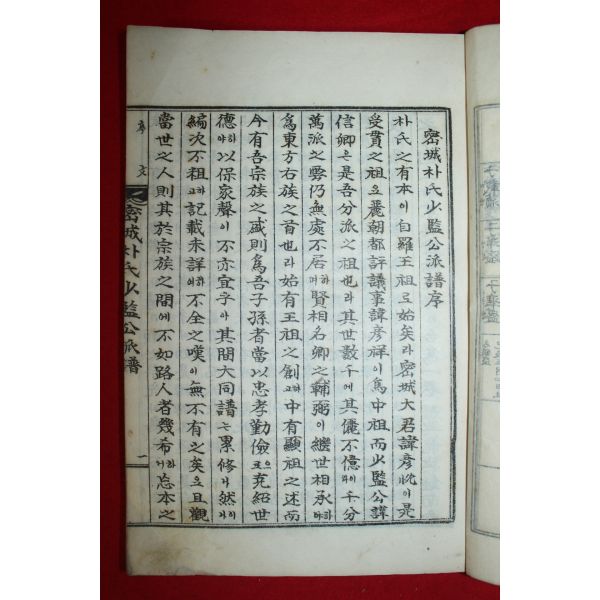 密城朴氏少監公派譜序
朴氏之有本이自羅王祖로始矣라密城大君諱彦忱이是
受貫之祖오麗朝都評議事諱彦祥이爲中祖而少監公諱
信卿은是吾分派之祖也라其世數千에其儷不億이라千分
萬派之雲仍無處不居하며賢相名卿之輔弼이繼世相承하야
爲東方右族之首也라始有王祖之創고中有顯祖之述而
今有吾宗族之盛則爲吾子孫者當以忠孝勤儉으로克紹世
德야以保家聲이不亦宜乎아其間大同譜는累修나然이나
編次不祖고記載未詳에不全之嘆이無不有之矣오且觀
當世之人則其於宗族之間에不如路人者幾希하니忘本之
序文
密城朴氏少監公派譜
一